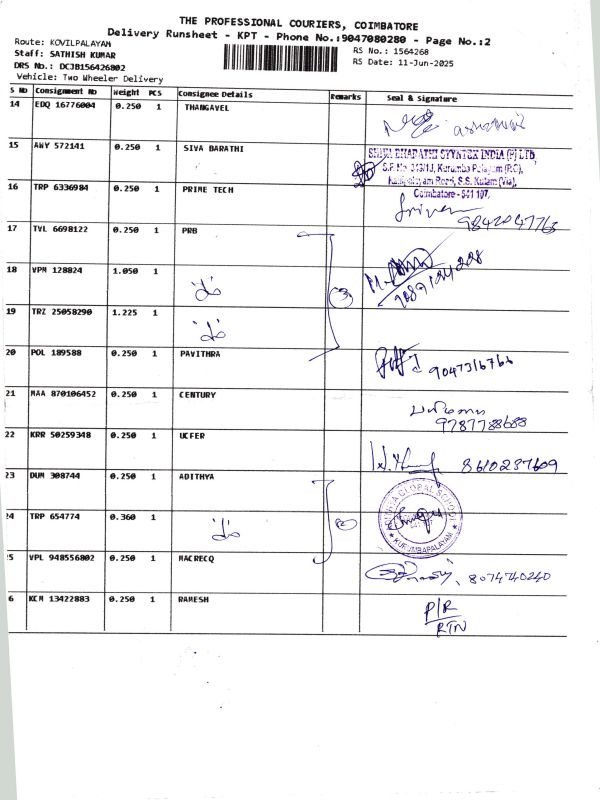 THE PROFESSIONAL COURIERS, COIMBATORE
Delivery Runsheet - KPT - Phone No.:9047080280 - Page No.:2
Route: KOVILPALAYAM
RS No.: 1564268
Staff: SATHISH KUMAR
RS Date: 11-Jun-2025
DRS No.: DCJB156426802
Vehicle: Two Wheeler Delivery
S No Consignment No Weight PCS Consignee Details Remarks Seal & Signature
14 EDQ 16776004 0.250 1 THANGAVEL
15 AWY 572141 0.250 1 SIVA BARATHI
SHIVA BHARATHI SYYNTEX INDIA (P) LTD
S.F. No. 313/1J, Kurumba Palayam (P.O),
Kalipalayam Road, S.S. Kulam (Via),
Coimbatore - 641 107.
16 TRP 6336984 0.250 1 PRIME TECH
9842047765
17 TVL 6698122 0.250 1 PRB
18 VPM 128824 1.050 1
3
19 TRZ 25058290 1.225 1
20 POL 189588 0.250 1 PAVITHRA
9047316766
21 MAA 870106452 0.250 1 CENTURY
9787788688
22 KRR 50259348 0.250 1 UCFER
8610237609
23 DUM 308744 0.250 1 ADITHYA
GLOBAL SCHOOL
KURUMBAPALAYAM
24 TRP 654774 0.360 1
25 VPL 948556802 0.250 1 MACRECQ
8074740240
6 KCM 13422883 0.250 1 RAMESH
P/R
RTN